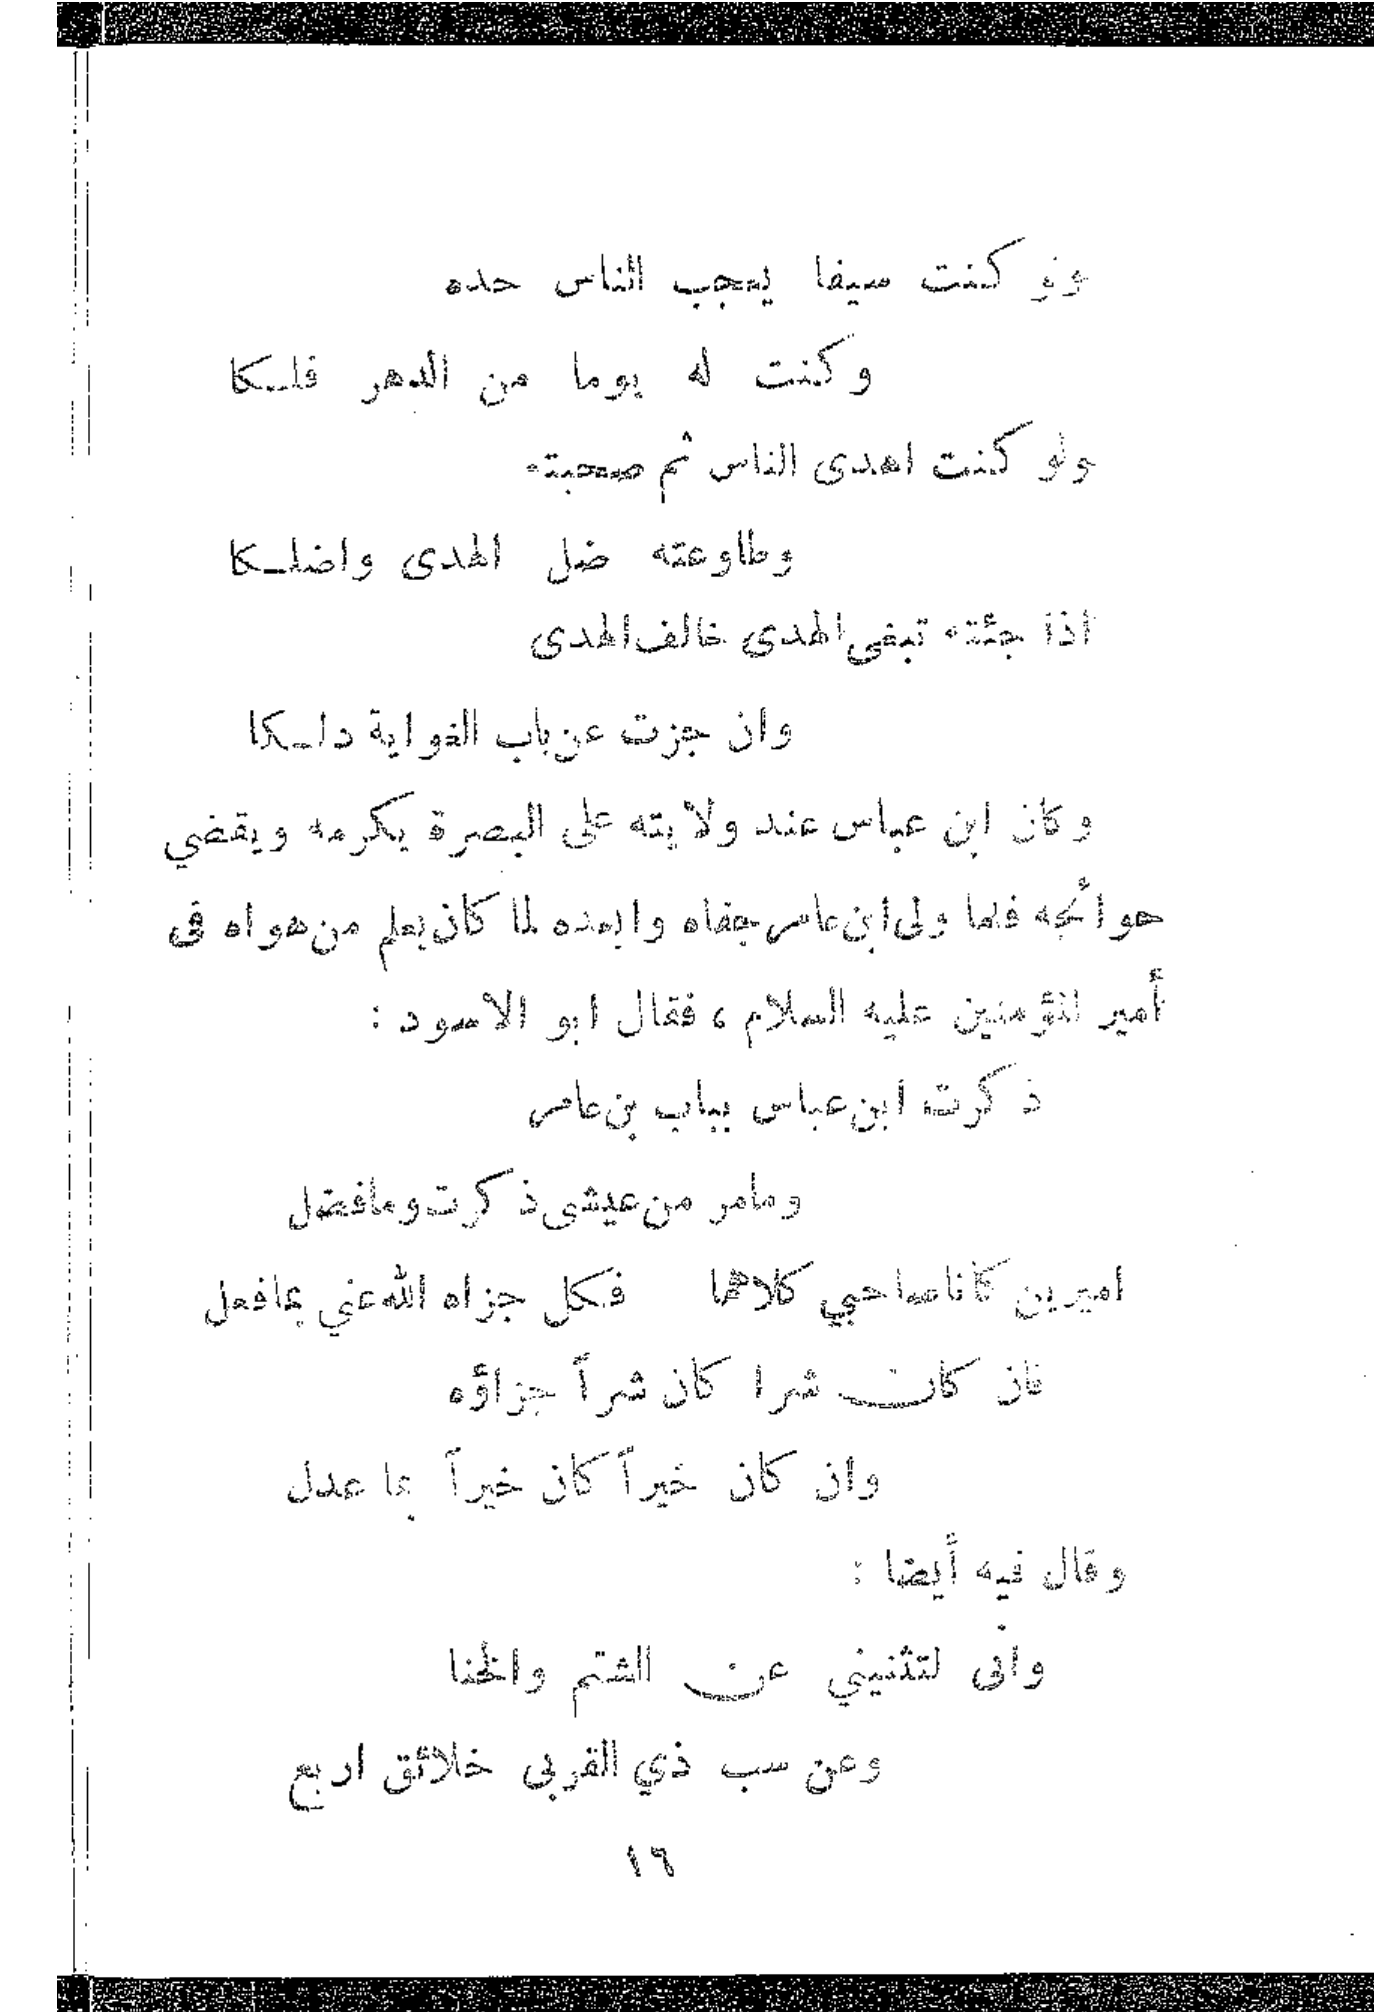 ولو كنت سيفا يعجب الناس حده
وكنت له يوما من الدهر فلكا
ولو كنت اهدى الناس ثم صحبته
وطاوعته ضل الهدى واضلكا
اذا جئته تبغى الهدى خالف الهدى
وان جزت عن باب الغواية دلكا
وكان ابن عباس عند ولايته على البصرة يكرمه ويقضي
حوائجه فلما ولى ابن عامر جفاه وابعده لما كان يعلم من هواه فى
أمير المؤمنين عليه السلام ، فقال ابو الاسود :
ذكرت ابن عباس بباب بن عامر
ومامر من عيشى ذكرت ومافضل
اميرين كانا صاحبي كلاهما فكل جزاه الله عني بمافعل
فان كان شرا كان شراً جزاؤه
وان كان خيراً كان خيراً بما عدل
وقال فيه أيضا :
وانى لتثنيني عن الشتم والخنا
وعن سب ذي القربى خلائق اربع
١٦